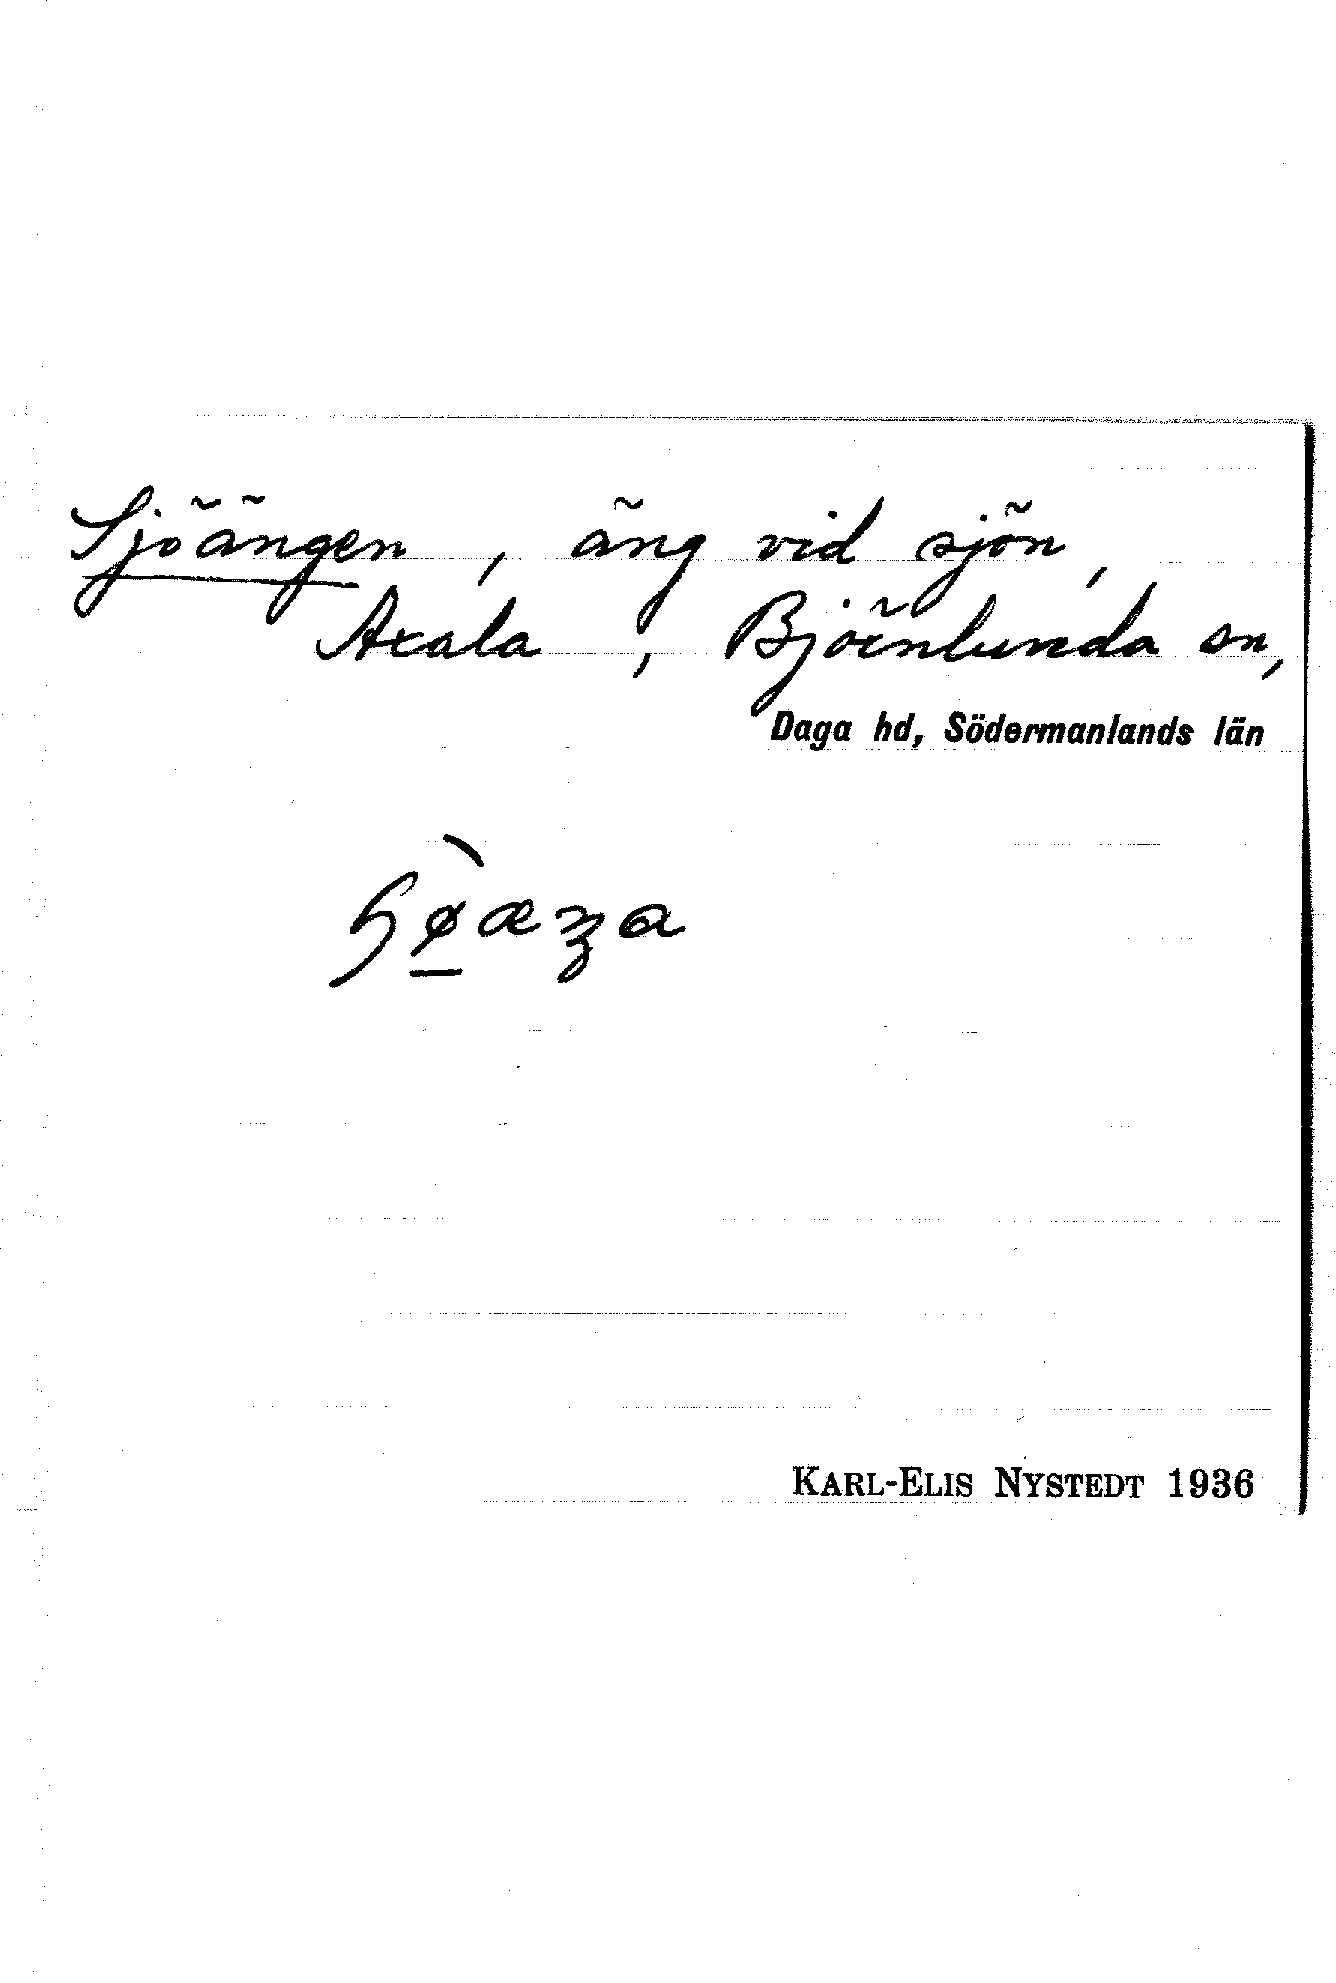 Sjöängen, äng vid sjön,
Axala, Björnlunda sn,
Daga hd, Södermanlands län
KARL-ELIS NYSTEDT 1936